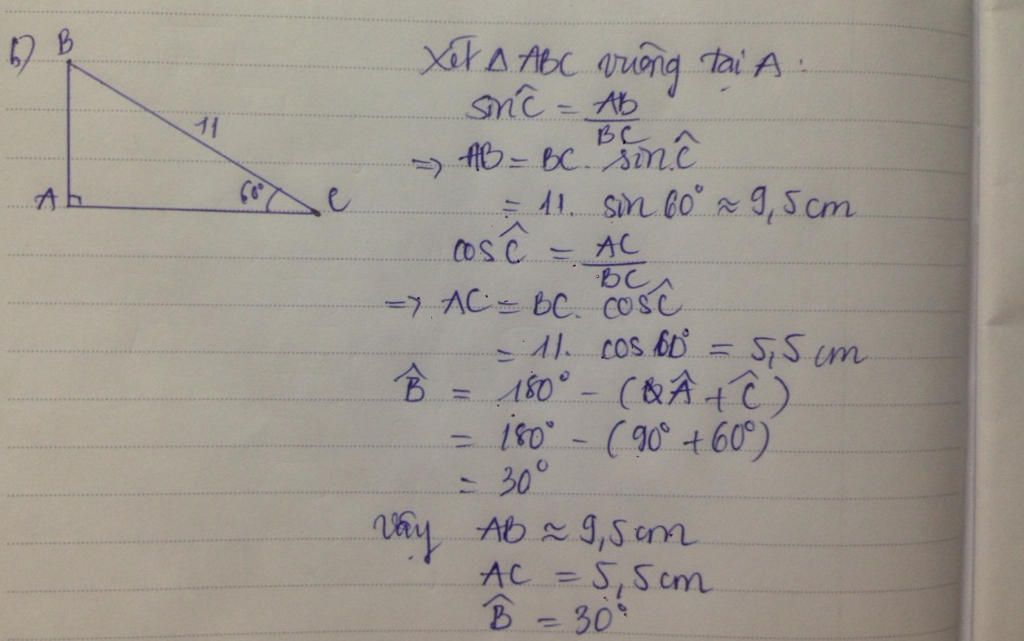 b)
B
11
A
60°
C
Xét Δ ABC vuông tại A :
sin Ĉ = AB / BC
=> AB = BC. sin Ĉ
= 11. sin 60° ≈ 9,5 cm
cos Ĉ = AC / BC
=> AC = BC. cos Ĉ
= 11. cos 60° = 5,5 cm
B̂ = 180° - (Â + Ĉ)
= 180° - (90° + 60°)
= 30°
Vậy AB ≈ 9,5 cm
AC = 5,5 cm
B̂ = 30°